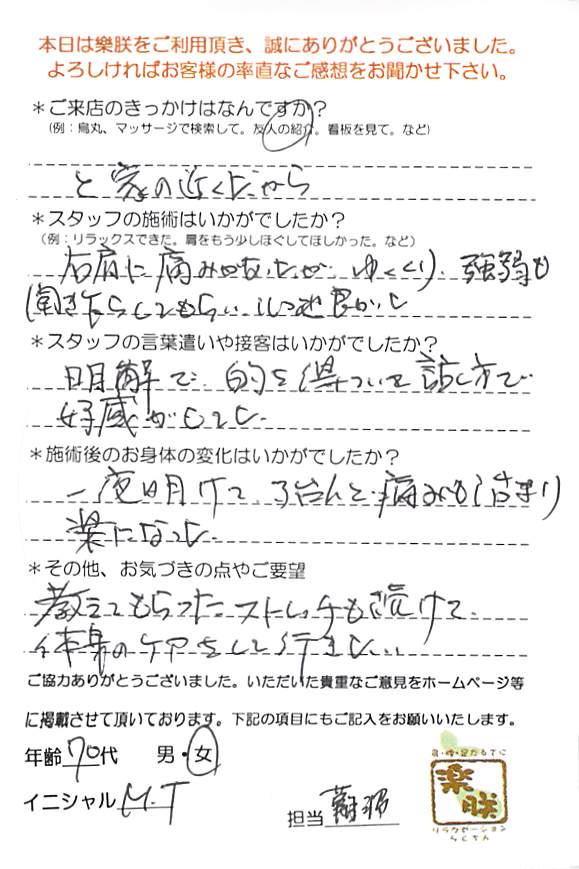 本日は樂朕をご利用頂き、誠にありがとうございました。
よろしければお客様の率直なご感想をお聞かせ下さい。
＊ご来店のきっかけはなんですか？
(例：烏丸、マッサージで検索して。友人の紹介。看板を見て。など)
と家の近くだから
＊スタッフの施術はいかがでしたか？
(例：リラックスできた。肩をもう少しほぐしてほしかった。など)
右肩に痛みがあったが、ゆっくり、強弱も
聞きながらしてもらい心地良かった
＊スタッフの言葉遣いや接客はいかがでしたか？
明解で、的を得ている話し方で
好感がもてた
＊施術後のお身体の変化はいかがでしたか？
一夜明けて、ずいぶんと痛みも治まり
楽になった
＊その他、お気づきの点やご要望
教えてもらったストレッチも続けて
体のケアをして行きたい
ご協力ありがとうございました。いただいた貴重なご意見をホームページ等
に掲載させて頂いております。下記の項目にもご記入をお願いいたします。
年齢 70代 男・女
イニシャル M.T 担当
楽朕
リラクゼーション
らくちん